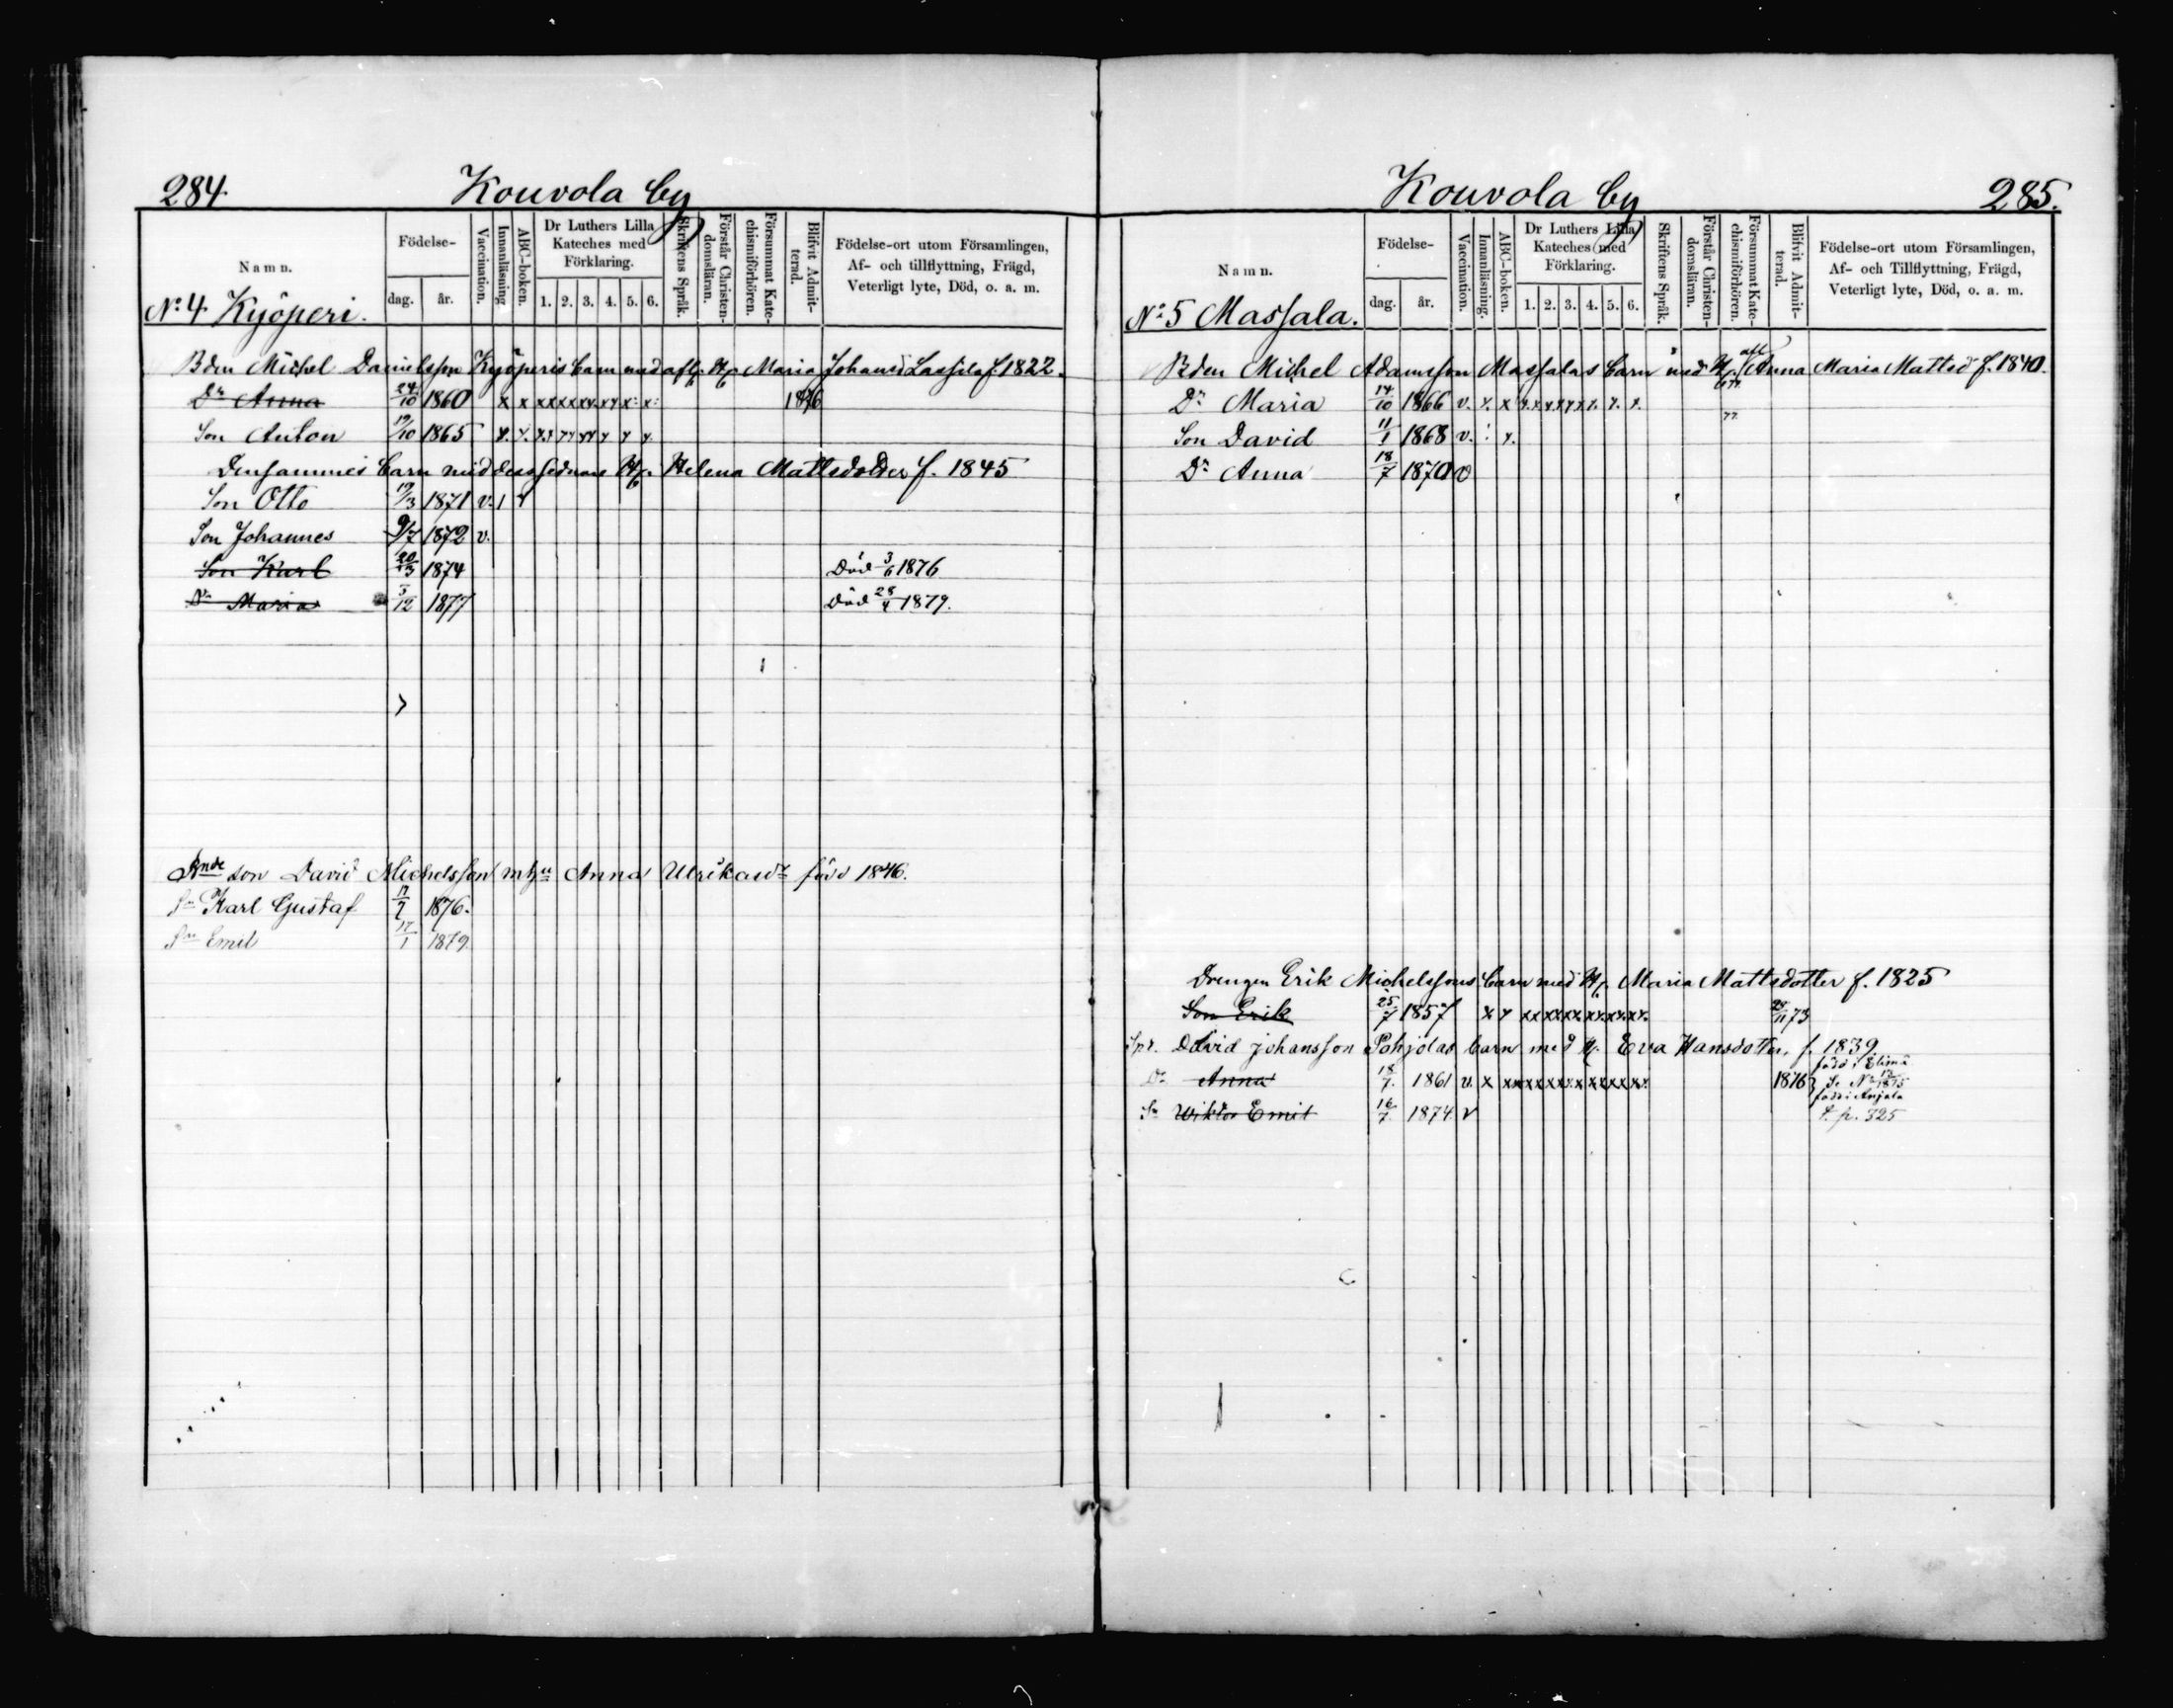 284. Kouvola by
Namn. Födelse- dag. år. Vaccination. Innanläsning ABC-boken. Dr Luthers Lilla Kateches med Förklaring. 1. 2. 3. 4. 5. 6. Skriftens Språk. Förstår Christendomsläran. Försummat Katechismiförhören. Blifvit Admitterad. Födelse-ort utom Församlingen, Af- och tillflyttning, Frägd, Veterligt lyte, Död, o. a. m.
No: 4 Kyöperi.
Bden Michel Danielsson Kyöperis barn med afl. H. Maria Johansd Lassila f. 1822.
Dr Anna 24/10 1860 x x x x x x x x x x x: x: 1876
Son Anton 19/10 1865 x. x. x x x x x x x x x.
Densammes barn med dess sednare H. Helena Mattsdotter f. 1845
Son Otto 19/3 1871 v. 1 1
Son Johannes 9/7 1872 v.
Son Karl 20/3 1874 Död 3/6 1876
Dr Maria 5/12 1877 Död 28/4 1879.
Bnde son David Michelsson m hu Anna Ulrikasdr född 1846.
Sn Karl Gustaf 17/7 1876.
Sn Emil 17/1 1879.
Kouvola by 285.
Namn. Födelse- dag. år. Vaccination. Innanläsning. ABC-boken. Dr Luthers Lilla Kateches med Förklaring. 1. 2. 3. 4. 5. 6. Skriftens Språk. Förstår Christendomsläran. Försummat Katechismiförhören. Blifvit Admitterad. Födelse-ort utom Församlingen, Af- och Tillflyttning, Frägd, Veterligt lyte, Död, o. a. m.
No: 5 Massala.
Bden Michel Adamsson Massalas barn med H. Anna Maria Mattsd f. 1840.
Dr Maria 14/10 1866 v. x. x x. x x x x x x. x. x. 77
Son David 11/1 1868 v. : x. 77
Dr Anna 18/7 1870 v
Drengen Erik Michelssons barn med H. Maria Mattsdotter f. 1825
Son Erik 25/7 1857 x x x x x x x x x x x x x x. 73
Spr. David Johansson Pohjolas barn med H. Eva Hansdotter, f. 1839
Dr Anna 18/7. 1861 v. x x x x x x x x x x x x x x 1876 född i Elimä
Sn Wiktor Emil 16/7. 1874. v född i Anjala
t. p. 325